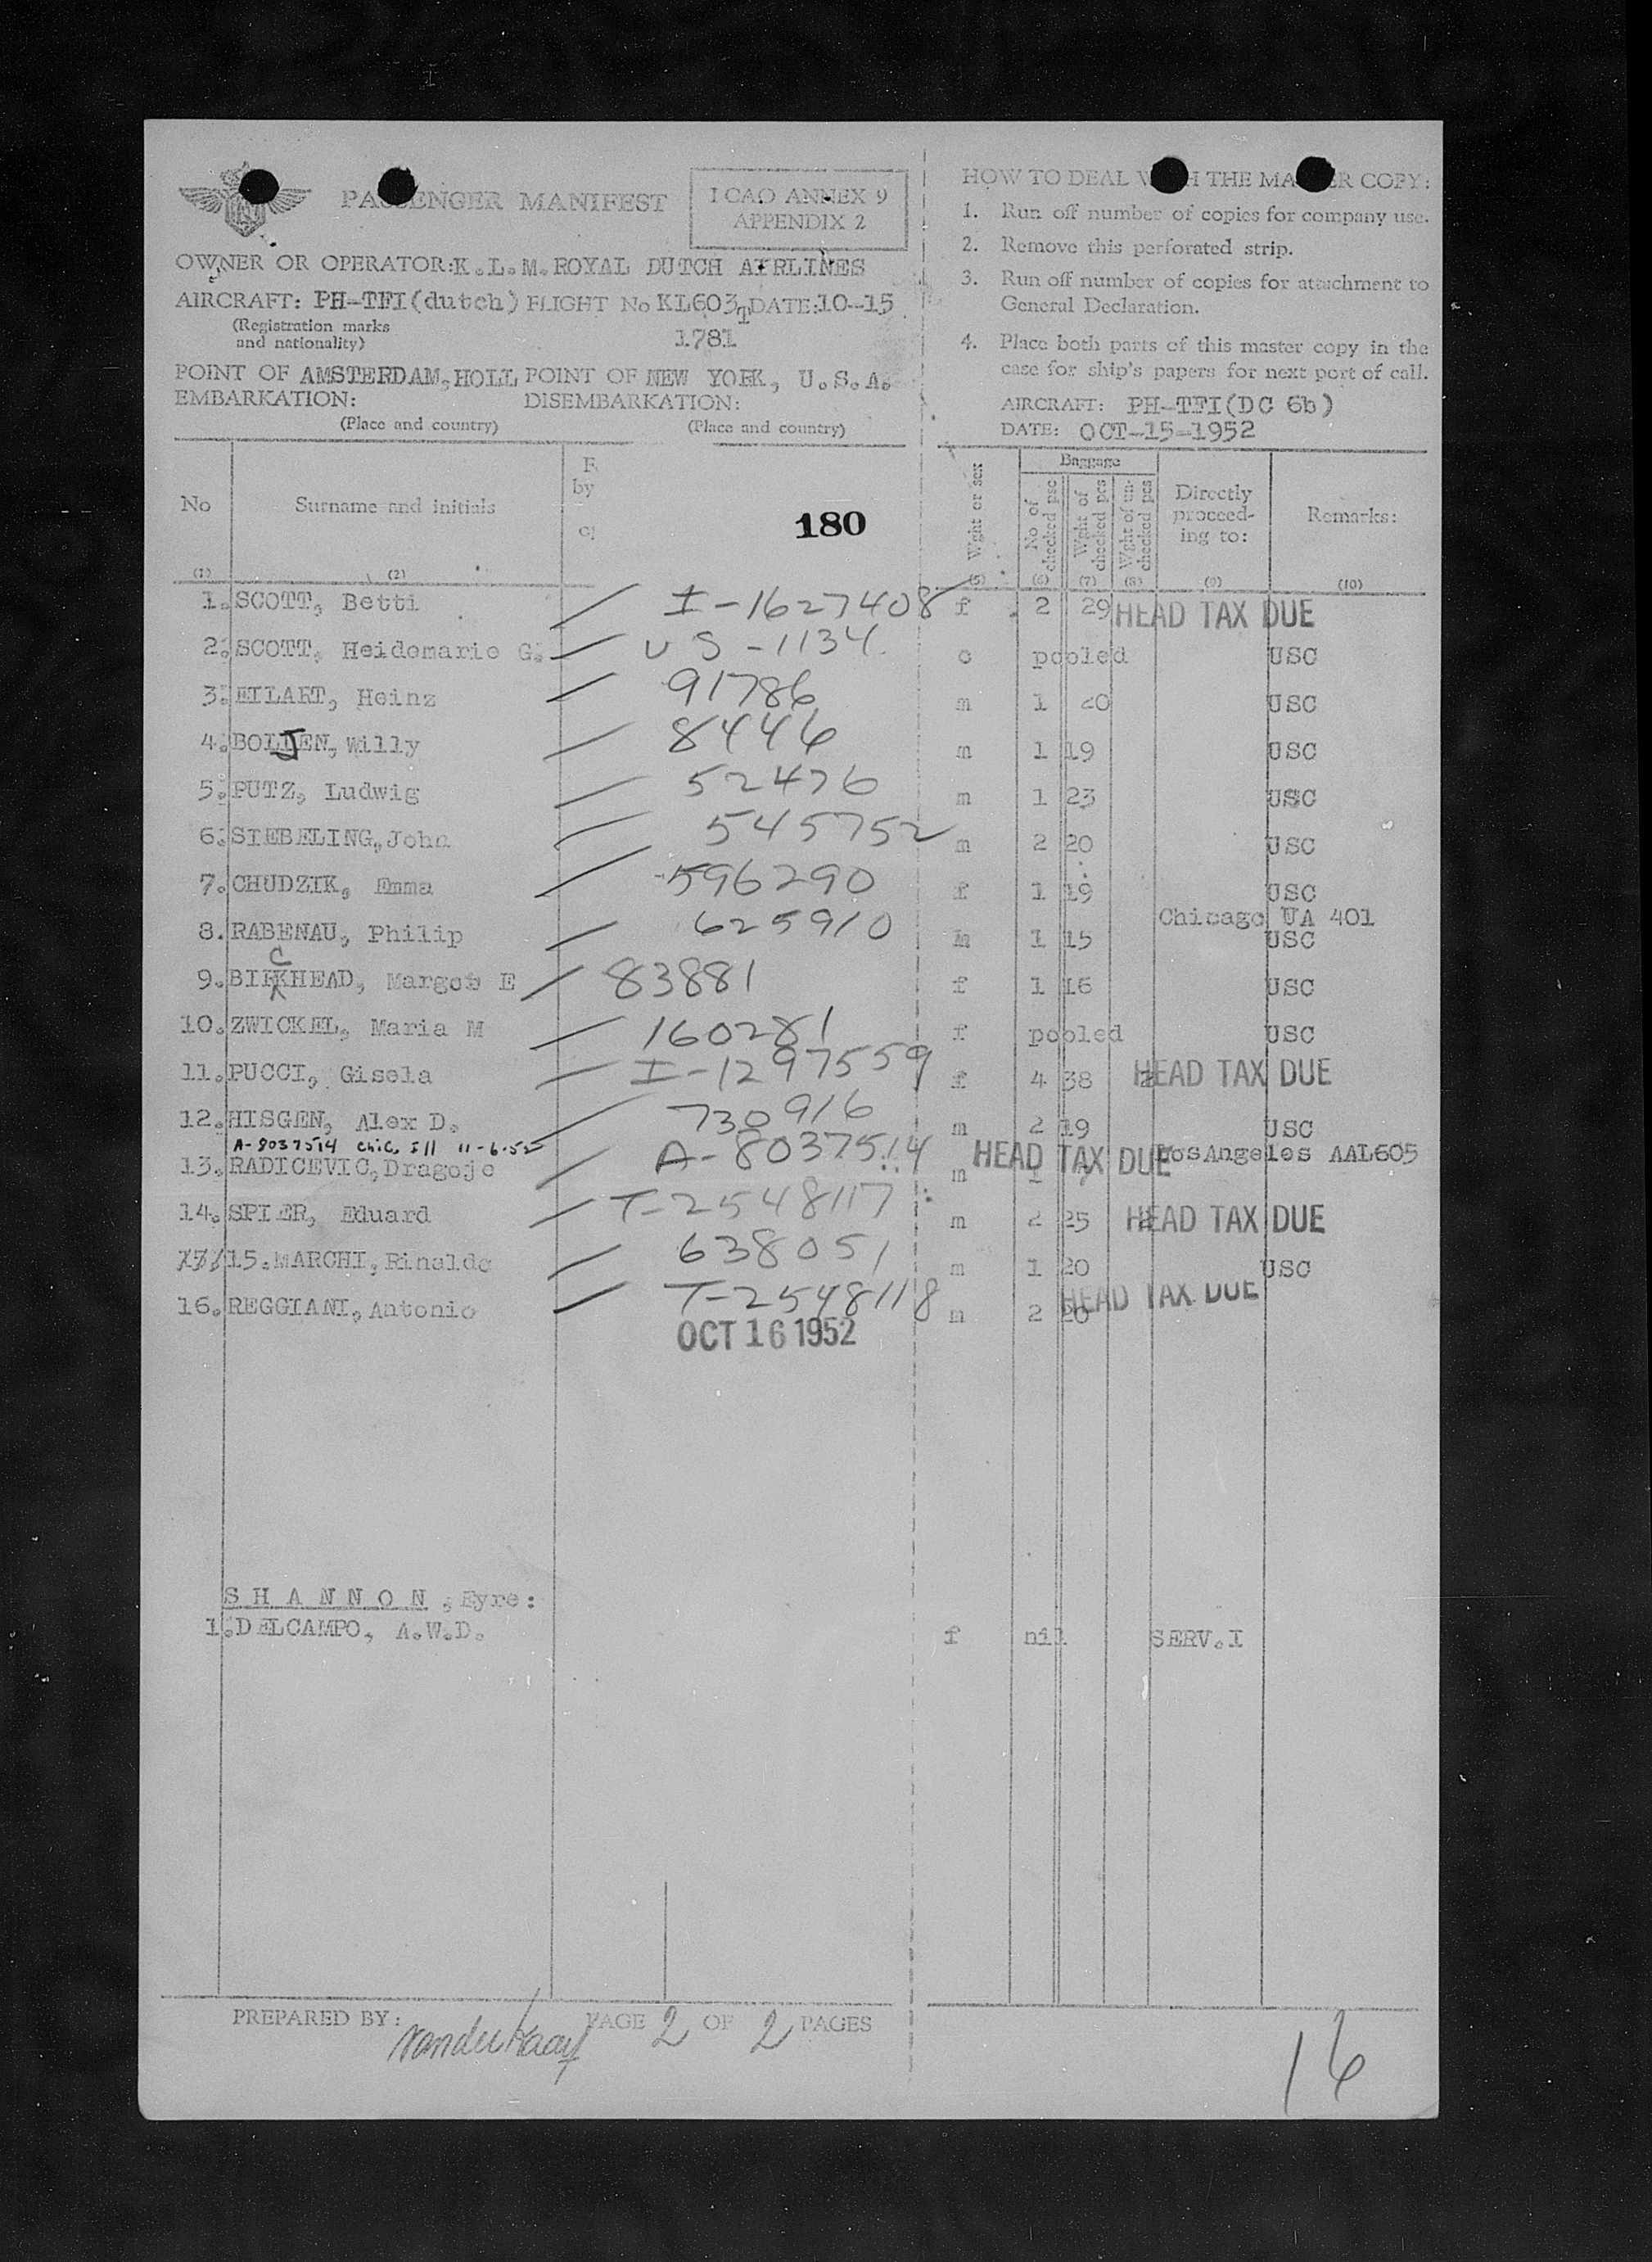 PASSENGER MANIFEST
ICAO ANNEX 9
APPENDIX 2
OWNER OR OPERATOR: K.L.M. ROYAL DUTCH AIRLINES
AIRCRAFT: PH-TFI (dutch) FLIGHT No KL603 T DATE: 10-15
(Registration marks
and nationality)
1781
POINT OF AMSTERDAM, HOLL POINT OF NEW YORK, U.S.A.
EMBARKATION: DISEMBARKATION:
(Place and country) (Place and country)
HOW TO DEAL WITH THE MASTER COPY:
1. Run off number of copies for company use.
2. Remove this perforated strip.
3. Run off number of copies for attachment to
General Declaration.
4. Place both parts of this master copy in the
case for ship's papers for next port of call.
AIRCRAFT: PH-TFI (DC 6b)
DATE: OCT-15-1952
No Surname and initials F by 180 Wght or sex Baggage No of checked psc Wght of checked pcs Wght of un-checked pcs Directly proceed-ing to: Remarks:
(1) (2) (5) (6) (7) (8) (9) (10)
1. SCOTT, Betti I-1627408 f 2 29 HEAD TAX DUE
2. SCOTT, Heidemarie G. US-1134 c pooled USC
3. EILART, Heinz 91786 m 1 20 USC
4. BOLJEN, Willy 8446 m 1 19 USC
5. PUTZ, Ludwig 52476 m 1 23 USC
6. SIEBELING, John 545752 m 2 20 USC
7. CHUDZIK, Emma 596290 f 1 19 USC
Chicago UA 401
8. RABENAU, Philip 625910 m 1 15 USC
9. BIRCKHEAD, Margot E 83881 f 1 16 USC
10. ZWICKEL, Maria M 160281 f pooled USC
11. PUCCI, Gisela I-1297559 f 4 38 HEAD TAX DUE
12. HISGEN, Alex D. 730916 m 2 19 USC
A-8037514 Chic, Ill 11-6-52
13. RADICEVIC, Dragoje A-8037514 m 1 HEAD TAX DUE Los Angeles AAL605
14. SPIER, Eduard T-2548117 m 2 25 HEAD TAX DUE
15. MARCHI, Rinaldo 638051 m 1 20 USC
16. REGGIANI, Antonio T-2548118 m 2 20 HEAD TAX DUE
OCT 16 1952
SHANNON, Eyre:
1. DELCAMPO, A.W.D. f nil SERV.I
PREPARED BY: PAGE 2 OF 2 PAGES
16